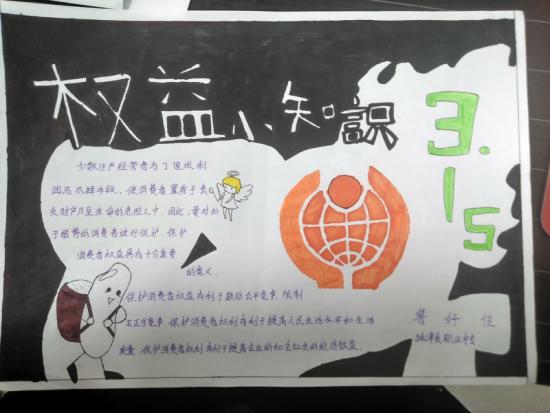 权益小知識
3.15
少数生产经营者为了追求利
因而不择手段，使消费者置身于丧
失财产乃至生命的危险之中，因此，要对处
于弱势的消费者进行保护，保护
消费者权益具有十分重要
的意义。
保护消费者权益有利于鼓励公平竞争，限制
不正当竞争，保护消费者权利有利于提高人民生活水平和生活
质量，保护消费者权利有利于提高企业的和全社会的经济效益。
好佳
县职业中专